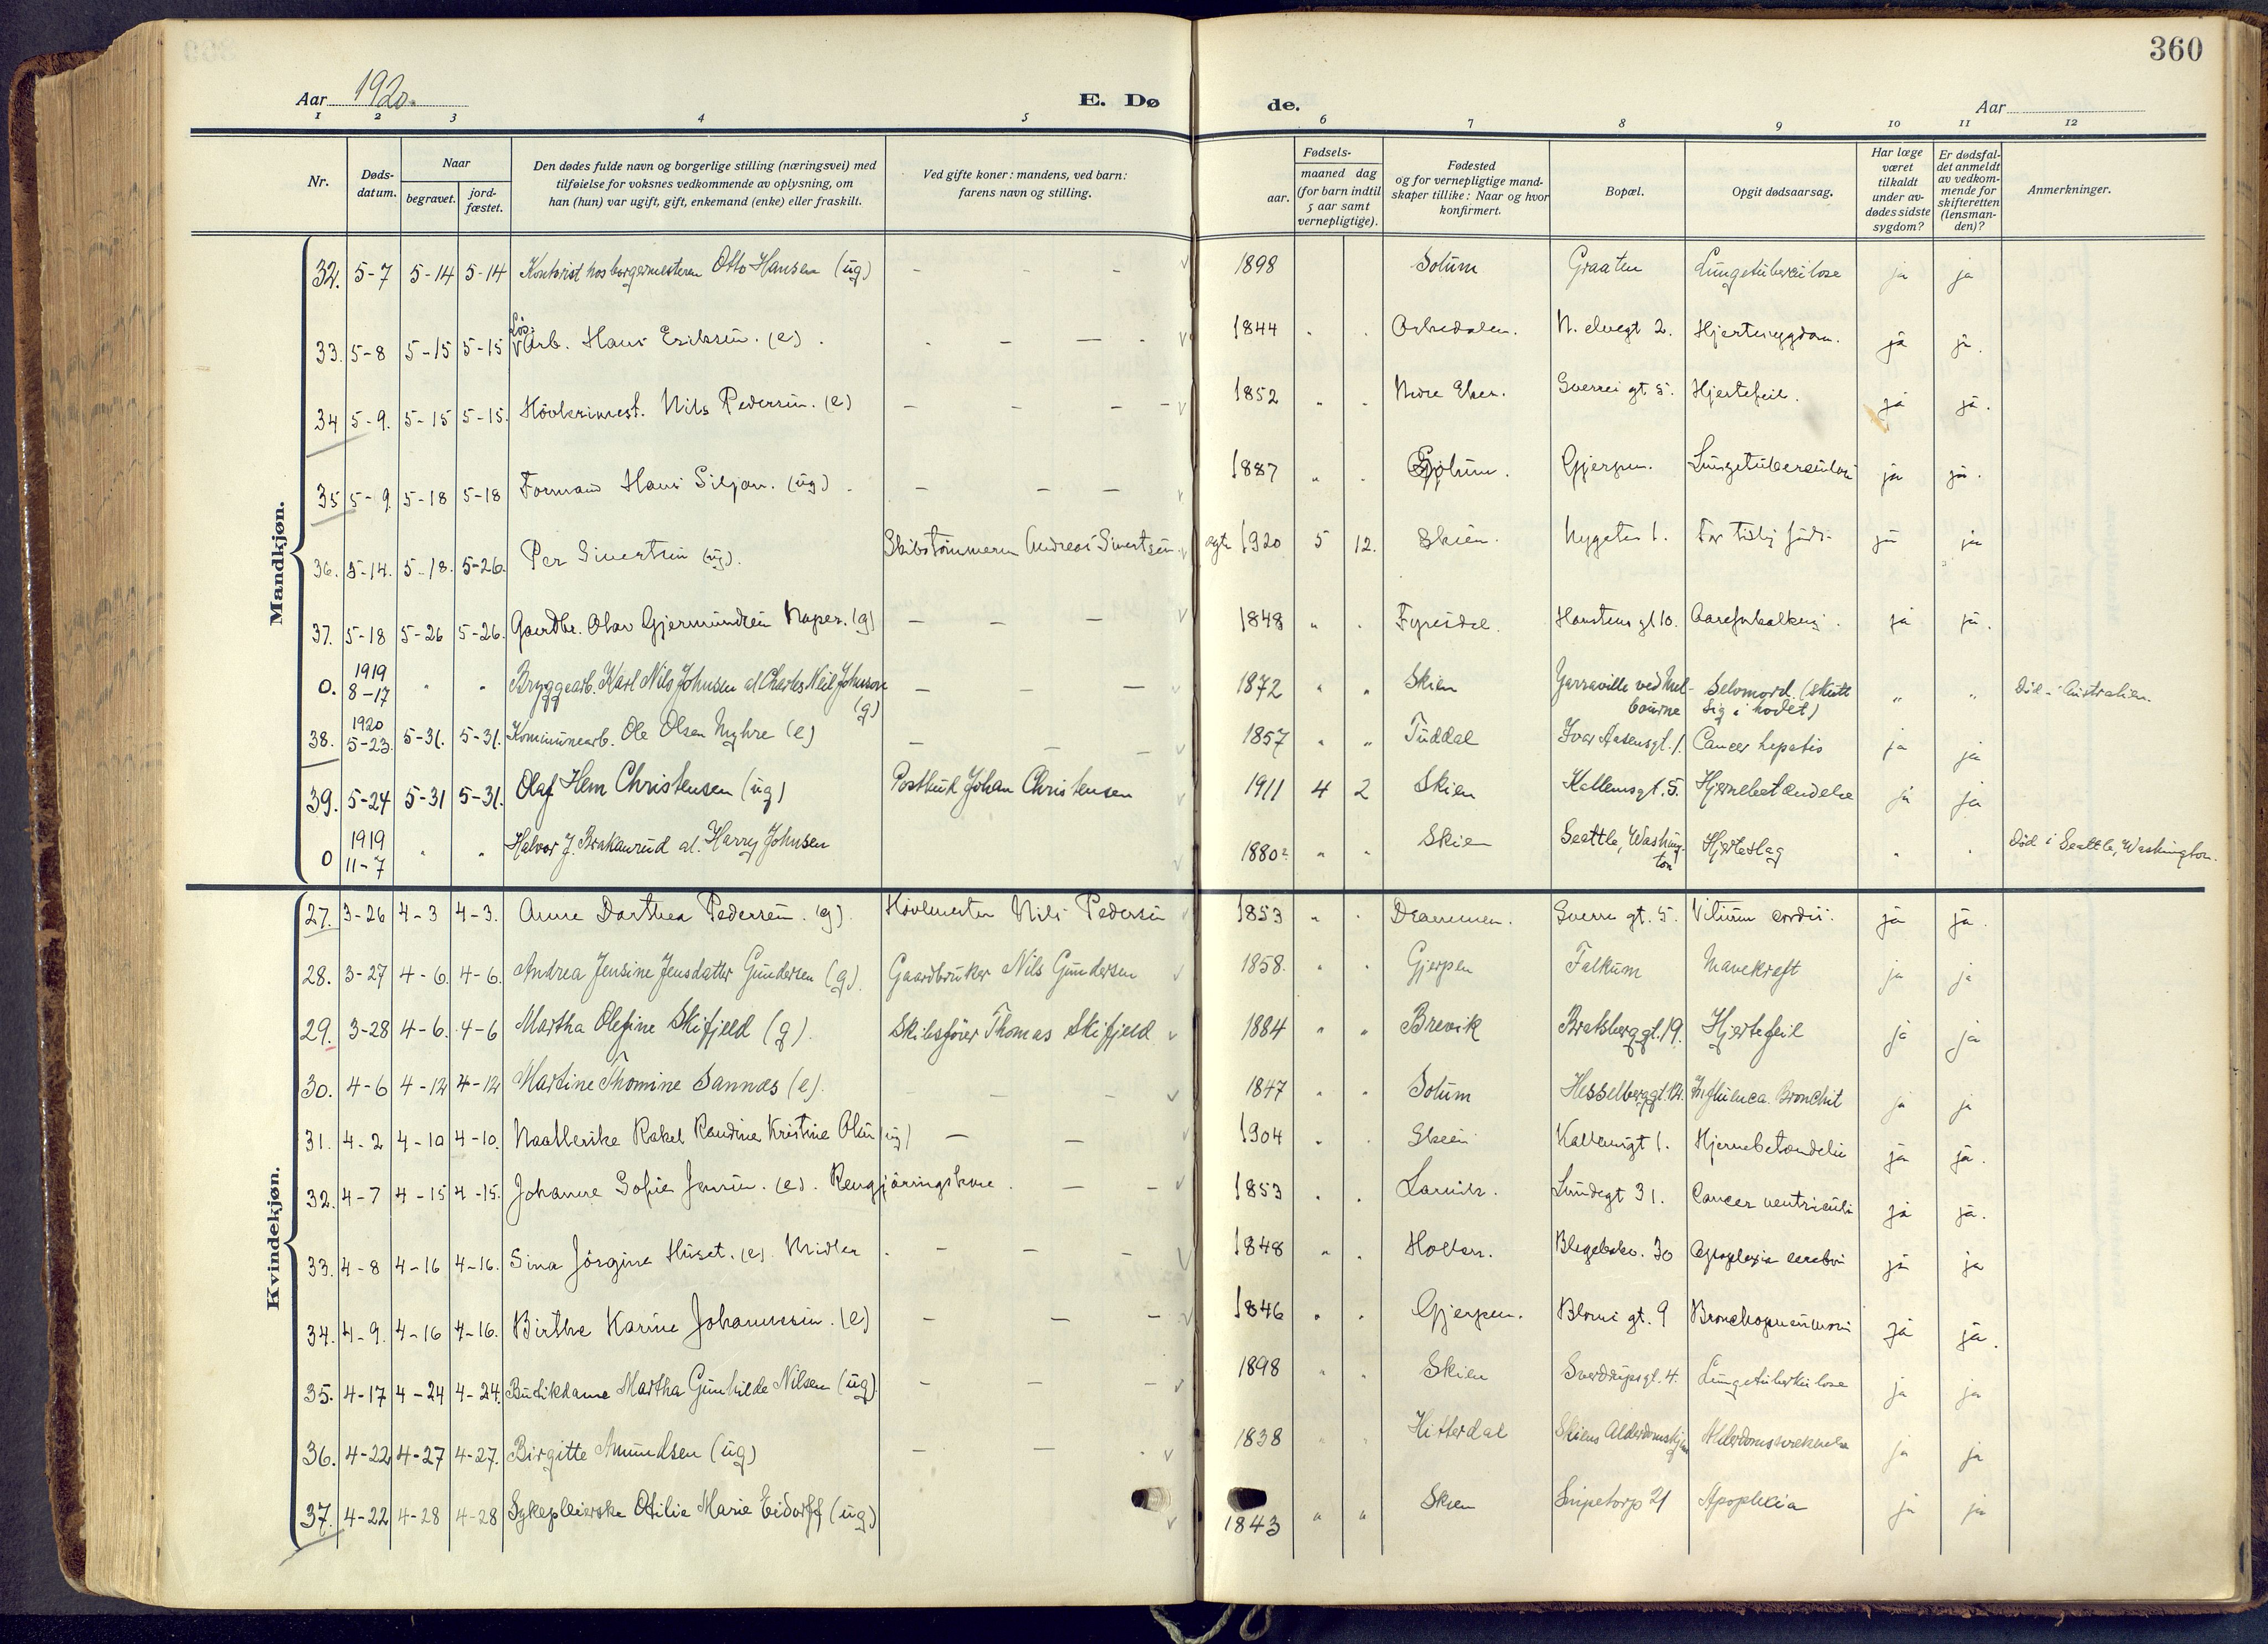 360
Aar 1920.
E. Dø
de.
Aar
1 2 3 4 5 6 7 8 9 10 11 12
Nr.
Døds-datum.
Naar
begravet.
jord-fæstet.
Den dødes fulde navn og borgerlige stilling (næringsvei) med tilføielse for voksnes vedkommende av oplysning, om han (hun) var ugift, gift, enkemand (enke) eller fraskilt.
Ved gifte koner: mandens, ved barn: farens navn og stilling.
Fødsels-
aar.
maaned dag (for barn indtil 5 aar samt vernepligtige).
Fødested og for vernepligtige mand-skaper tillike: Naar og hvor konfirmert.
Bopæl.
Opgit dødsaarsag.
Har læge været tilkaldt under av-dødes sidste sygdom?
Er dødsfal-det anmeldt av vedkom-mende for skifteretten (lensman-den)?
Anmerkninger.
Mandkjøn.
32. 5-7 5-14 5-14 Kontorist hos borgermesteren Otto Hansen (ug) - - - 1898 Solum Graaten Lungetuberculose ja ja
33. 5-8 5-15 5-15 Løs-Arb. Hans Eriksen. (e). 1844 N. elvegt 2. Hjertesygdom. ja ja.
34 5-9. 5-15 5-15. Nils Pedersen. (e) - - - 1852 Nedre Eker. Sverresgt 5. Hjertefeil. ja ja.
35 5-9. 5-18 5-18 Formand Hans Siljan. (ug). - - - 1887 Solum. Gjerpen. Lungetuberculose ja ja.
36. 5-14. 5-18. 5-26. Per Sivertsen (ug). Skibstømmerm Andreas Sivertsen. agte 1920 5 12. Skien. Nygaten 1. For tidlig født. ja ja
37. 5-18 5-26 5-26. Gaardbr. Olav Gjermundsen Naper. (g) - - - 1848 Fyresdal. Hanstens gt 10. Aareforkalkning. ja ja.
0. 1919 8-17 " " Bryggearb. Karl Nils Johnsen al Charles Neil Johnson (g) - - - 1872 " " Skien Yarraville ved Mel-bourne Selvmord. (skutt sig i hodet) " " Død i Australien.
38. 1920 5-23. 5-31. 5-31. Kommunearb. Ole Olsen Myhre (e) - - - 1857 " " Tuddal Ivar Aasensgt. 1. Cancer hepatis ja ja
39. 5-24 5-31 5-31. Olaf Hem Christensen (ug) Postbud Johan Christensen 1911 4 2 Skien Kallemsgt. 5. Hjernebetændelse ja ja
0 1919 11-7 " " Halvor J. Brukanrud al. Harry Johnsen 1880? " " Skien Seattle, Washing-ton Hjerteslag " " Død i Seattle, Washington.
Kvindekjøn.
27. 3-26 4-3 4-3. Anne Dorthea Pedersen. (g). Høvlmester Nils Pedersen 1853 " " Drammen. Sverres gt. 5. Vitium cordis. ja ja.
28. 3-27 4-6. 4-6. Andrea Jensine Jensdatter Gundersen (g). Gaardbruker Nils Gundersen 1858. " " Gjerpen Falkum Mavekræft ja ja
29. 3-28 4-6. 4-6 Martha Olefine Skifjeld (g). Skibsfører Thomas Skifjeld 1884 " " Brevik Bratsberggt. 19. Hjertefeil ja ja
30. 4-6 4-12 4-12 Martine Thomine Sannæs (e). - - - 1847 " " Solum Hesselberggt. 12. Influenca. Bronchit ja ja
31. 4-2 4-10 4-10. Rakel Randine Kristine Olsen (ug) - - 1904 " Skien Kallemsgt 1. Hjernebetændelse ja ja.
32. 4-7 4-15 4-15. Johanne Sofie Jensen. (e). Rengjøringskone. - - 1853 " " Larvik. Lundegt 31. Cancer ventriculi ja ja.
33. 4-8 4-16 4-16. Sina Jørgine Huset. (e). - - - 1848 " " Holten. Blegebakv. 30 Apoplexia cerebri ja ja
34. 4-9. 4-16 4-16. Birthe Karine Johannesen. (e) - - - 1846 " " Gjerpen. Bloms gt. 9 Bronchopneumoni ja ja.
35. 4-17 4-24 4-24. Butikdame Martha Gunhilde Nilsen (ug) - - - 1898 " " Skien Sverdrupsgt. 4. Lungetuberkulose ja ja
36. 4-22 4-27 4-27. Birgitte Amundsen (ug) - - - 1838 " " Hitterdal Skiens Alderdomshjem Alderdomssvækkelse ja ja
37. 4-22 4-28 4-28 Sykepleierske Otilie Marie Eidorff (ug) 1843 " " Skien Snipetorp 21 Apoplexia ja ja